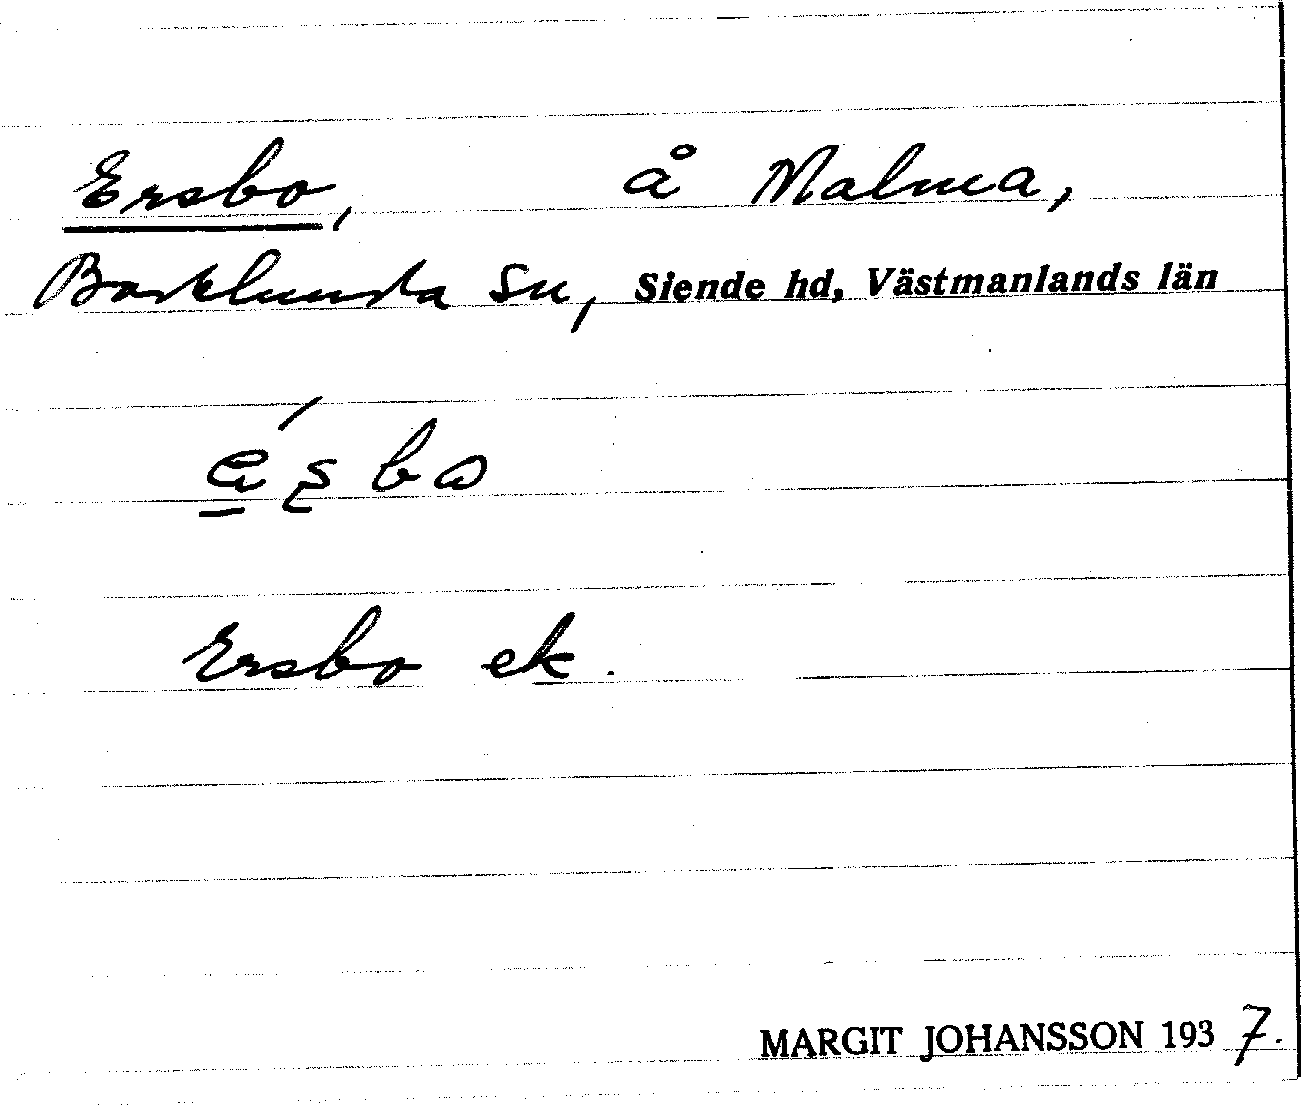 Ersbo, å Malma,
Barklunda Sn, Siende hd, Västmanlands län
Ersbo ek.
MARGIT JOHANSSON 1937.